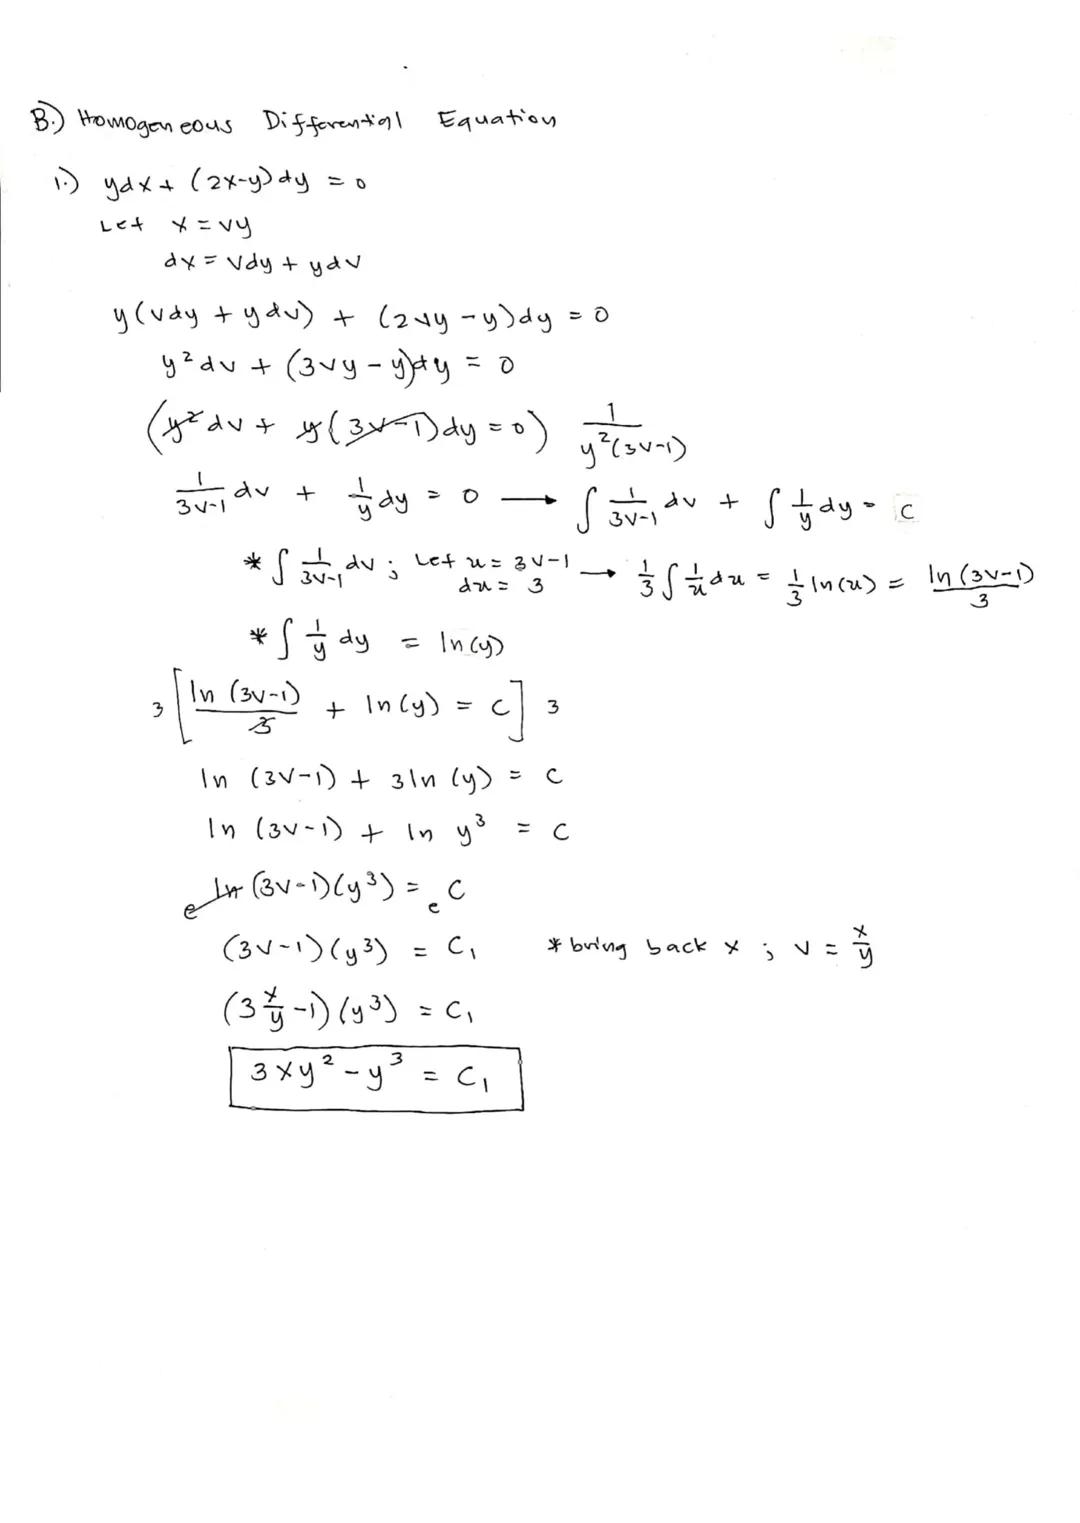 B.) Homogeneous Differential Equation
1.) ydx + (2x-y)dy = 0
Let x = vy
dx = vdy + ydv
y(vdy + ydv) + (2vy - y)dy = 0
y²dv + (3vy - y)dy = 0
(y²dv + y(3v-1)dy = 0) 1/(y²(3v-1))
1/(3v-1) dv + 1/y dy = 0 → ∫ 1/(3v-1) dv + ∫ 1/y dy = c
* ∫ 1/(3v-1) dv ; Let u = 3v-1 → 1/3 ∫ 1/u du = 1/3 ln(u) = ln(3v-1)/3
du = 3
* ∫ 1/y dy = ln(y)
3 [ ln (3v-1)/3 + ln(y) = c ] 3
ln (3v-1) + 3ln (y) = c
ln (3v-1) + ln y³ = c
e ln (3v-1)(y³) = e c
(3v-1)(y³) = C₁ * bring back x ; v = x/y
(3 x/y - 1)(y³) = C₁
3xy² - y³ = C₁